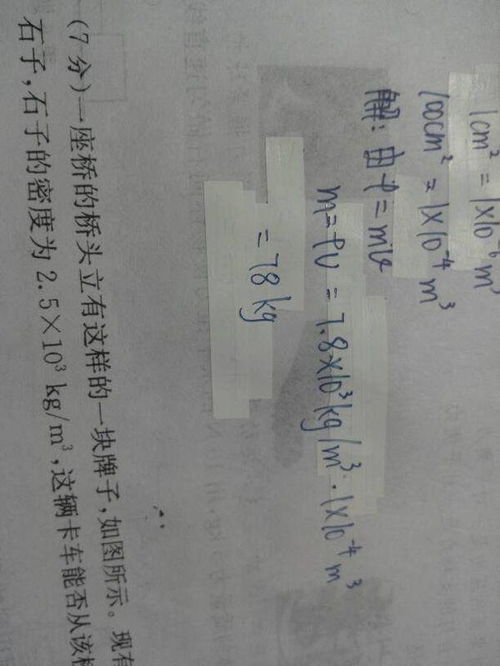 1cm² = 1×10⁻⁶m³
100cm² = 1×10⁻⁴m³
解：由ρ=m/v
m=ρv = 7.8×10³kg/m³·1×10⁻⁴m³
=78kg
(7分)一座桥的桥头立有这样的一块牌子，如图所示。现有
石子，石子的密度为2.5×10³ kg/m³，这辆卡车能否从该桥